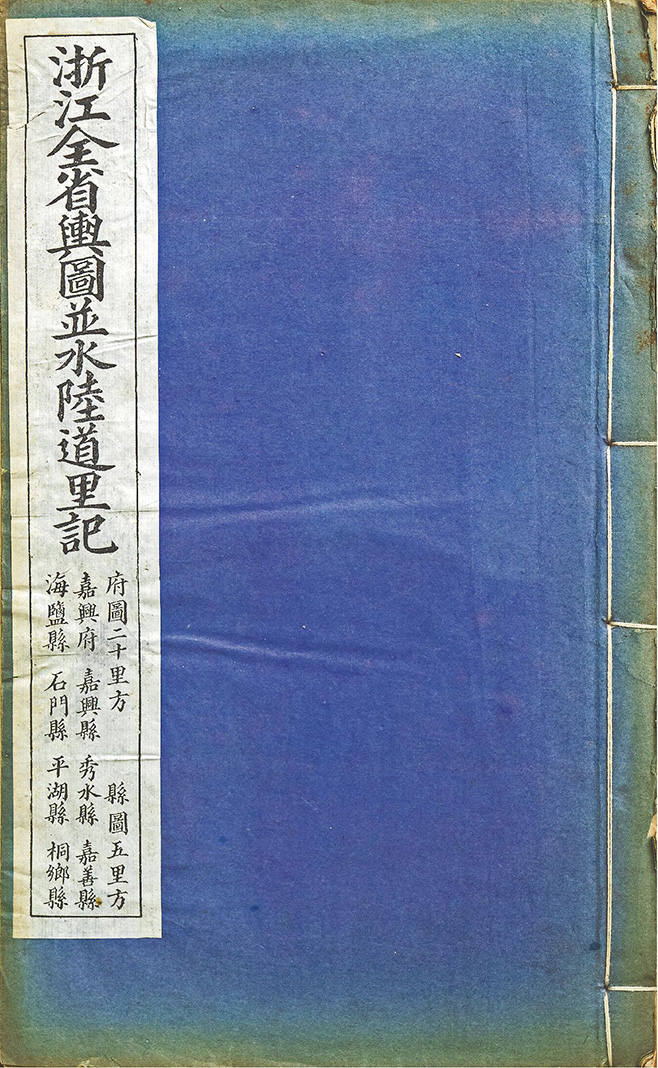 浙江全省輿圖並水陸道里記
府圖二十里方 縣圖五里方
嘉興府 嘉興縣 秀水縣 嘉善縣
海鹽縣 石門縣 平湖縣 桐鄉縣